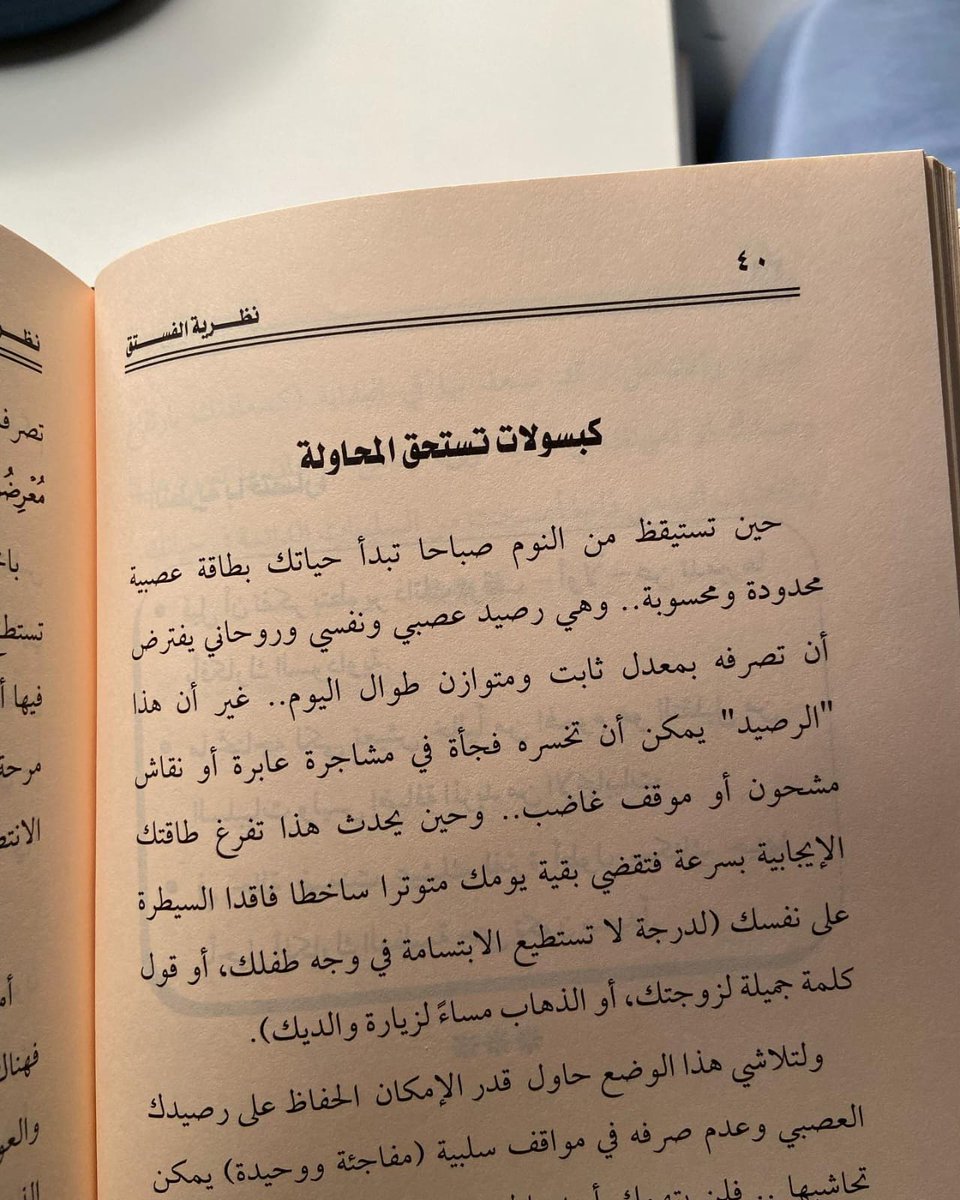 ٤٠
نظرية الفستق
كبسولات تستحق المحاولة
حين تستيقظ من النوم صباحا تبدأ حياتك بطاقة عصبية
محدودة ومحسوبة.. وهي رصيد عصبي ونفسي وروحاني يفترض
أن تصرفه بمعدل ثابت ومتوازن طوال اليوم.. غير أن هذا
"الرصيد" يمكن أن تخسره فجأة في مشاجرة عابرة أو نقاش
مشحون أو موقف غاضب.. وحين يحدث هذا تفرغ طاقتك
الإيجابية بسرعة فتقضي بقية يومك متوترا ساخطا فاقدا السيطرة
على نفسك (لدرجة لا تستطيع الابتسامة في وجه طفلك، أو قول
كلمة جميلة لزوجتك، أو الذهاب مساءً لزيارة والديك).
ولتلاشي هذا الوضع حاول قدر الإمكان الحفاظ على رصيدك
العصبي وعدم صرفه في مواقف سلبية (مفاجئة ووحيدة) يمكن
تحاشيها .. فلن
مرحة
فيها